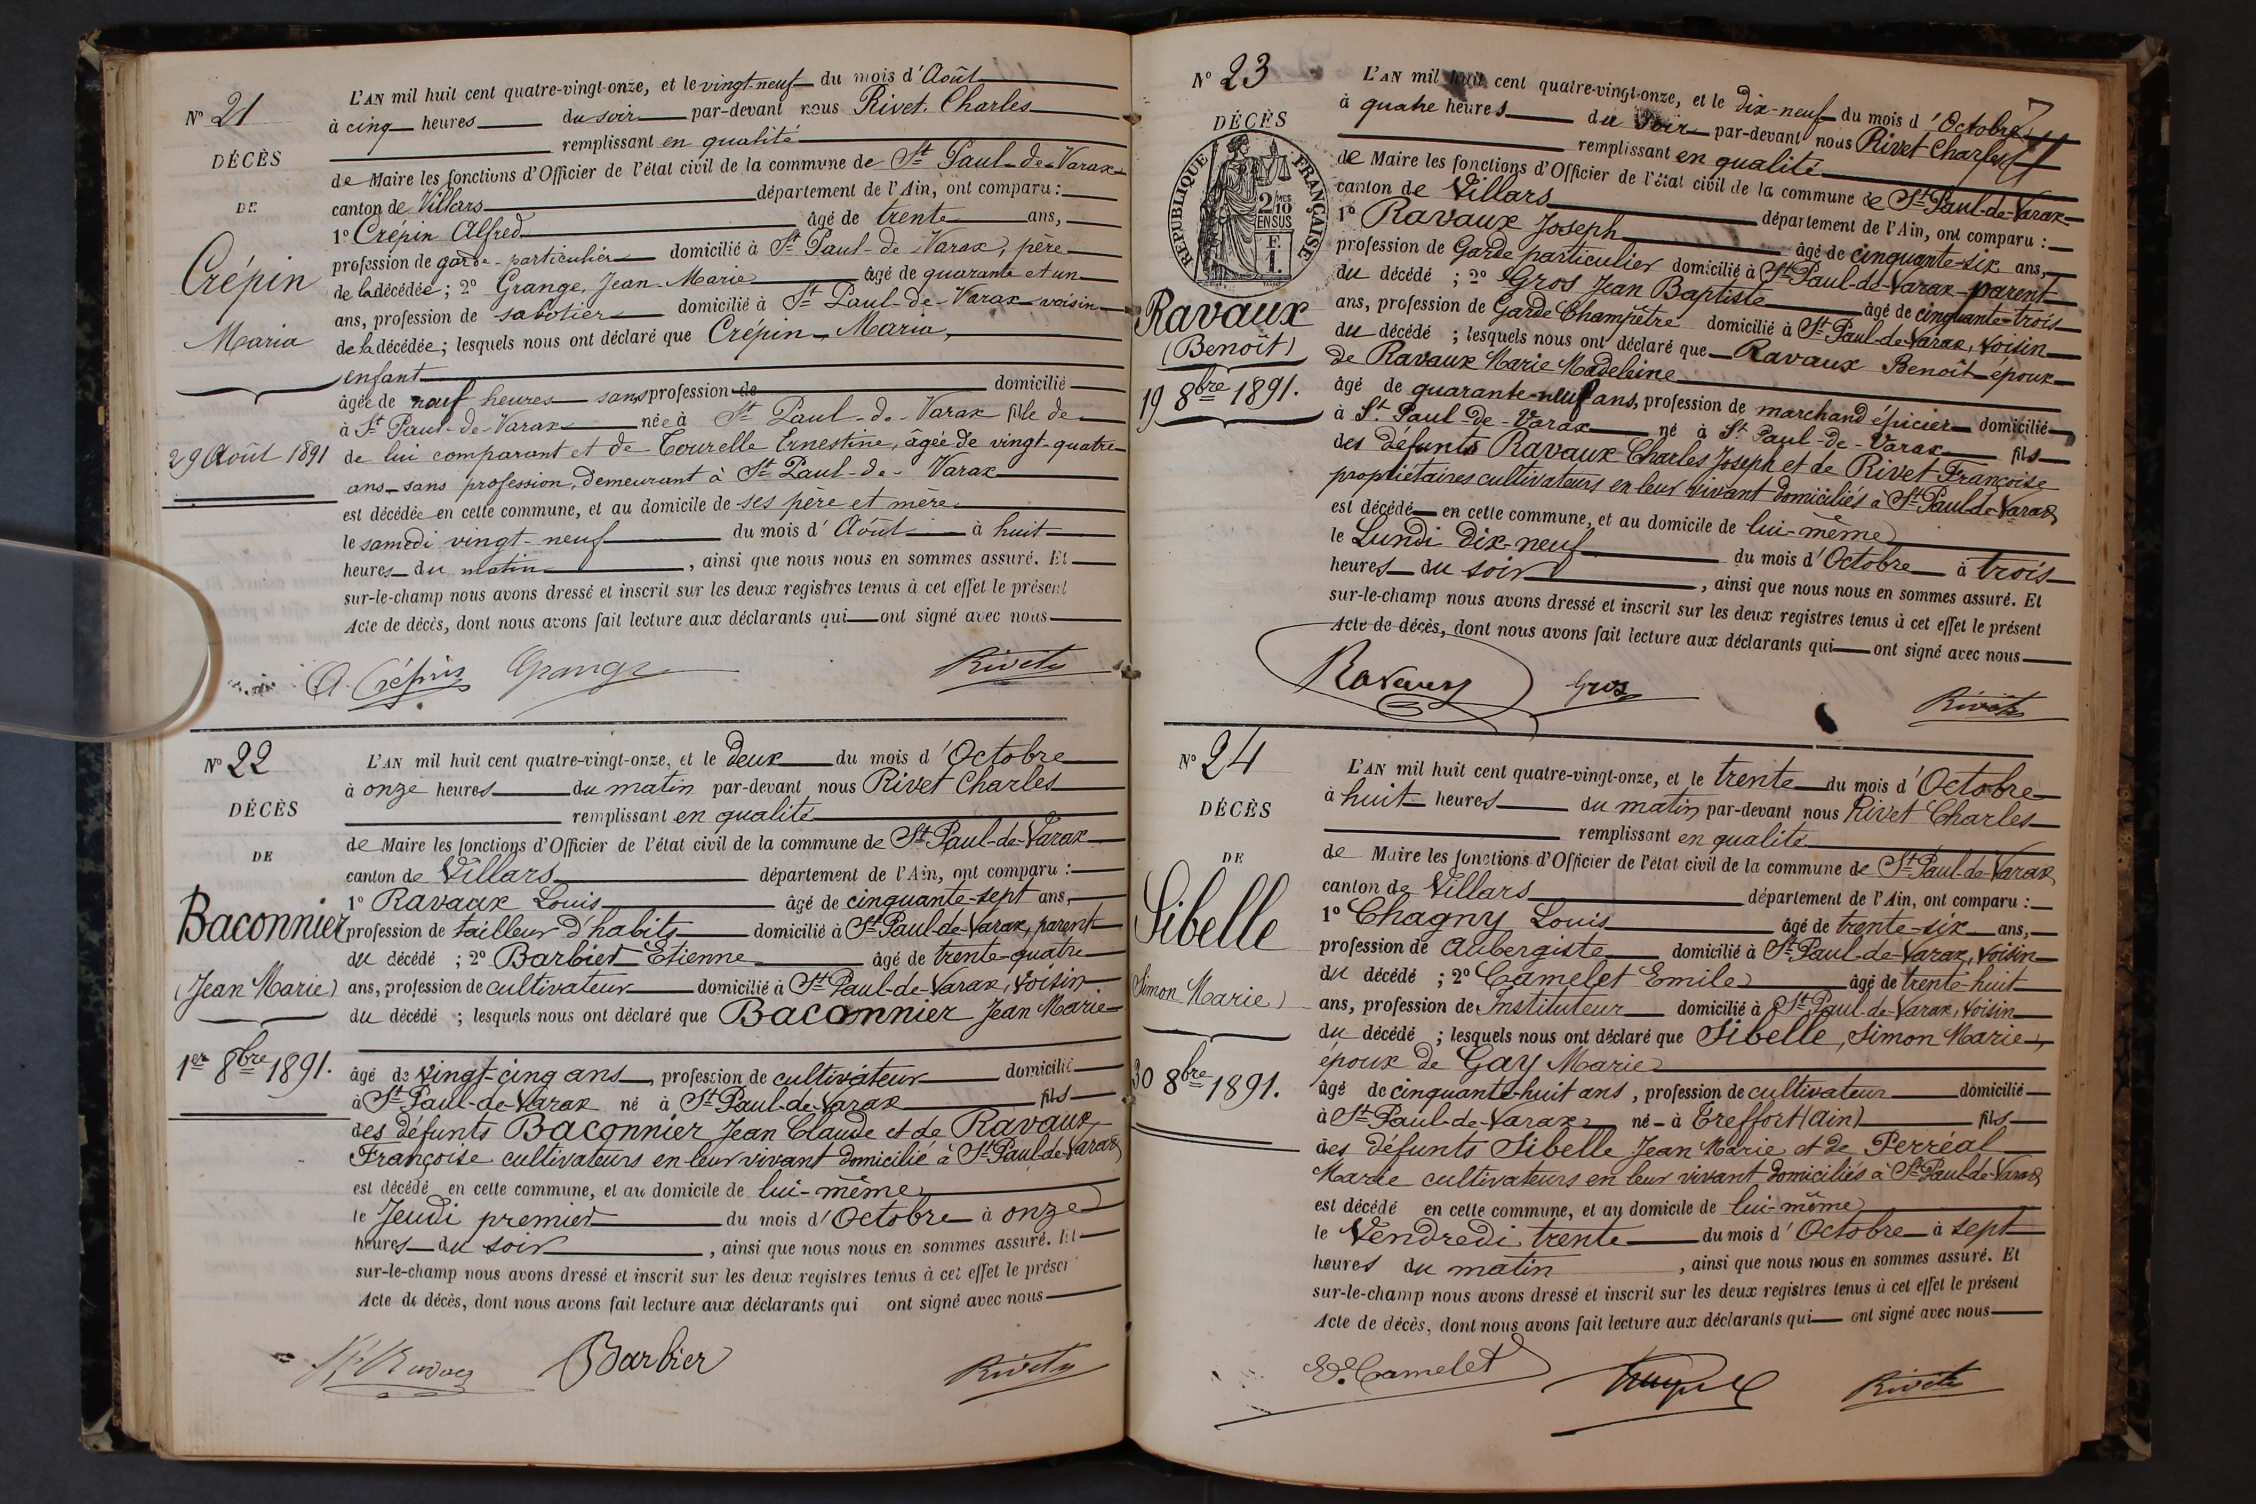 N° 21
DÉCÈS
DE
Crépin
Maria
29 Août 1891
L'AN mil huit cent quatre-vingt-onze, et le vingt-neuf du mois d'Août
à cinq heures du soir par-devant nous Rivet Charles
remplissant en qualité
de Maire les fonctions d'Officier de l'état civil de la commune de St Paul-de-Varax
canton de Villars département de l'Ain, ont comparu :
1° Crépin Alfred âgé de trente ans,
profession de garde-particulier domicilié à St Paul-de-Varax, père
de la décédée ; 2° Grange, Jean-Marie âgé de quarante et un
ans, profession de sabotier domicilié à St Paul-de-Varax voisin
de la décédée ; lesquels nous ont déclaré que Crépin Maria,
enfant
âgée de neuf heures sans profession de domicilié
à St Paul-de-Varax née à St Paul-de-Varax fille de
de lui comparant et de Tourelle Ernestine, âgée de vingt-quatre
ans sans profession, demeurant à St Paul-de-Varax
est décédée en cette commune, et au domicile de ses père et mère
le samedi vingt-neuf du mois d'Août à huit
heures du matin, ainsi que nous nous en sommes assuré. Et
sur-le-champ nous avons dressé et inscrit sur les deux registres tenus à cet effet le présent
Acte de décès, dont nous avons fait lecture aux déclarants qui ont signé avec nous
A. Crépin Grange Rivet
N° 22
DÉCÈS
DE
Baconnier
(Jean Marie)
1er 8bre 1891.
L'AN mil huit cent quatre-vingt-onze, et le deux du mois d'Octobre
à onze heures du matin par-devant nous Rivet Charles
remplissant en qualité
de Maire les fonctions d'Officier de l'état civil de la commune de St Paul-de-Varax
canton de Villars département de l'Ain, ont comparu :
1° Ravaux Louis âgé de cinquante-sept ans,
profession de tailleur d'habits domicilié à St Paul-de-Varax, parent
du décédé ; 2° Barbier Etienne âgé de trente-quatre
ans, profession de cultivateur domicilié à St Paul-de-Varax, voisin
du décédé ; lesquels nous ont déclaré que Baconnier Jean Marie
âgé de vingt-cinq ans, profession de cultivateur domicilié
à St Paul-de-Varax né à St Paul-de-Varax fils
des défunts Baconnier Jean Claude et de Ravaux
Françoise cultivateurs en leur vivant domicilié à St Paul-de-Varax
est décédé en cette commune, et au domicile de lui-même
le Jeudi premier du mois d'Octobre à onze
heures du soir, ainsi que nous nous en sommes assuré. Et
sur-le-champ nous avons dressé et inscrit sur les deux registres tenus à cet effet le présent
Acte de décès, dont nous avons fait lecture aux déclarants qui ont signé avec nous
Barbier Rivet
N° 23
DÉCÈS
RÉPUBLIQUE FRANÇAISE
2 MES
10
EN SUS
F.
1.
Ravaux
(Benoît)
19 8bre 1891.
L'AN mil huit cent quatre-vingt-onze, et le dix-neuf du mois d'Octobre
à quatre heures du soir par-devant nous Rivet Charles
remplissant en qualité
de Maire les fonctions d'Officier de l'état civil de la commune de St Paul-de-Varax
canton de Villars département de l'Ain, ont comparu :
1° Ravaux Joseph âgé de cinquante-six ans,
profession de Garde particulier domicilié à St Paul-de-Varax parent
du décédé ; 2° Gros Jean Baptiste âgé de cinquante-trois
ans, profession de Garde Champêtre domicilié à St Paul-de-Varax, voisin
du décédé ; lesquels nous ont déclaré que Ravaux Benoît époux
de Ravaux Marie Madeleine
âgé de quarante-neuf ans, profession de marchand épicier domicilié
à St Paul-de-Varax né à St Paul-de-Varax fils
des défunts Ravaux Charles Joseph et de Rivet Françoise
propriétaires cultivateurs en leur vivant domiciliés à St Paul-de-Varax
est décédé en cette commune, et au domicile de lui-même
le Lundi dix-neuf du mois d'Octobre à trois
heures du soir, ainsi que nous nous en sommes assuré. Et
sur-le-champ nous avons dressé et inscrit sur les deux registres tenus à cet effet le présent
Acte de décès, dont nous avons fait lecture aux déclarants qui ont signé avec nous
Ravaux Gros Rivet
N° 24
DÉCÈS
DE
Sibelle
Simon Marie)
30 8bre 1891.
L'AN mil huit cent quatre-vingt-onze, et le trente du mois d'Octobre
à huit heures du matin par-devant nous Rivet Charles
remplissant en qualité
de Maire les fonctions d'Officier de l'état civil de la commune de St Paul-de-Varax
canton de Villars département de l'Ain, ont comparu :
1° Chagny Louis âgé de trente-six ans,
profession de Aubergiste domicilié à St Paul-de-Varax, voisin
du décédé ; 2° Camelet Emile âgé de trente-huit
ans, profession de Instituteur domicilié à St Paul-de-Varax, voisin
du décédé ; lesquels nous ont déclaré que Sibelle, Simon Marie,
époux de Gay Marie
âgé de cinquante-huit ans, profession de cultivateur domicilié
à St Paul-de-Varax né à Treffort (Ain) fils
des défunts Sibelle Jean Marie et de Perréal
Marie cultivateurs en leur vivant domiciliés à St Paul-de-Varax
est décédé en cette commune, et au domicile de lui-même
le Vendredi trente du mois d'Octobre à sept
heures du matin, ainsi que nous nous en sommes assuré. Et
sur-le-champ nous avons dressé et inscrit sur les deux registres tenus à cet effet le présent
Acte de décès, dont nous avons fait lecture aux déclarants qui ont signé avec nous
E. Camelet Rivet